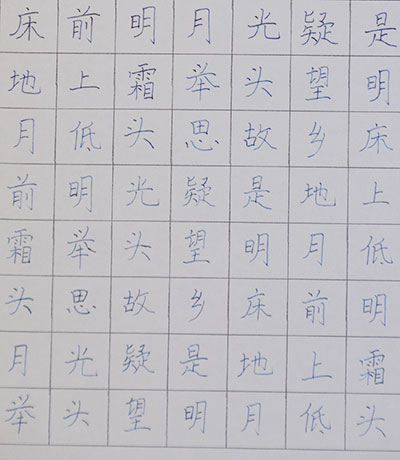 床前明月光疑是
地上霜举头望明
月低头思故乡床
前明光疑是地上
霜举头望明月低
头思故乡床前明
月光疑是地上霜
举头望明月低头